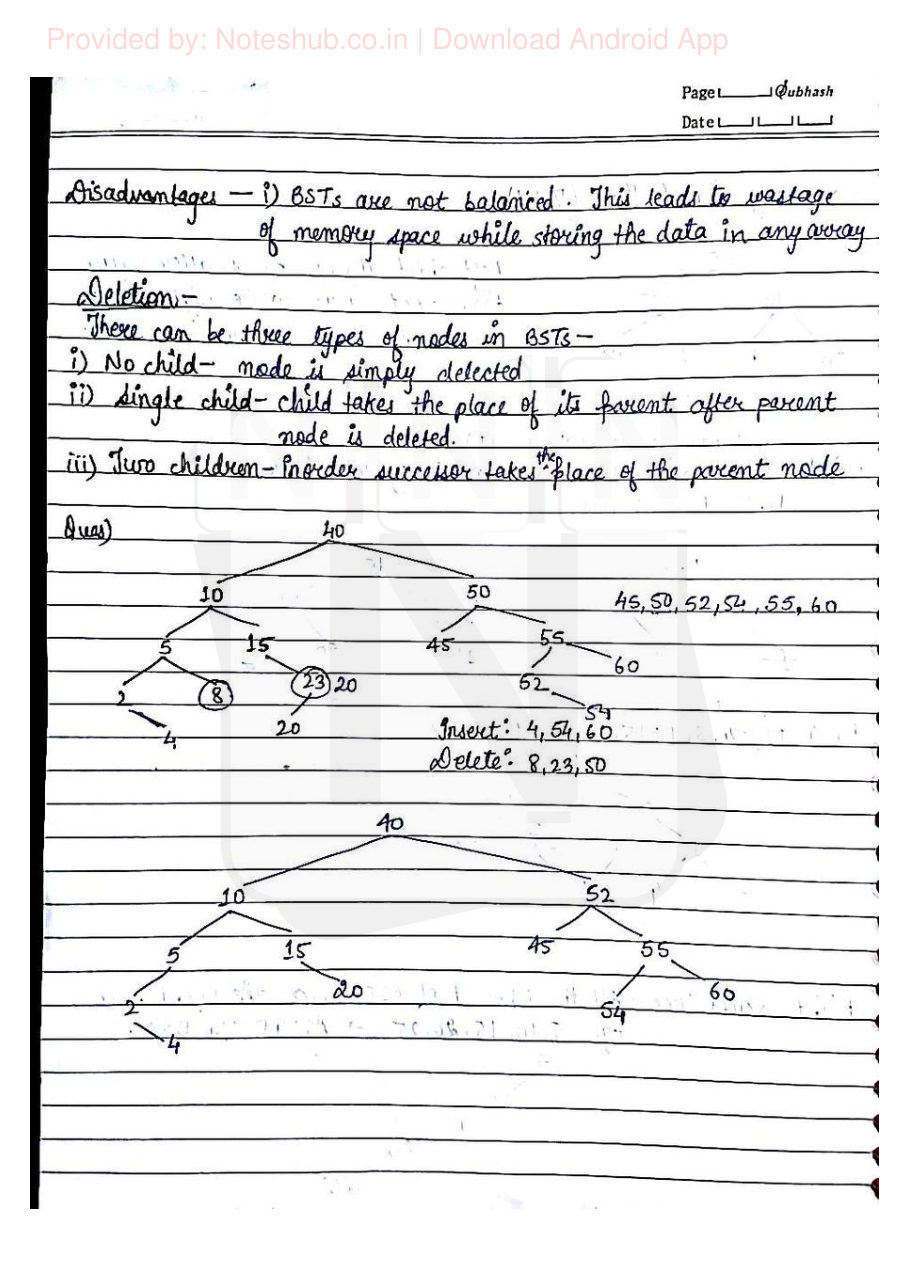 Provided by: Noteshub.co.in | Download Android App
Page Subhash
Date
Disadvantages — i) BSTs are not balanced. This leads to wastage
of memory space while storing the data in any array
Deletion:-
There can be three types of nodes in BSTs -
i) No child- node is simply delected
ii) Single child- child takes the place of its parent after parent
node is deleted.
iii) Two children- inorder successor takes the place of the parent node
Ques)
40
10 50
45, 50, 52, 54, 55, 60
5 15 45 55
60
2 8 23 20 52
54
4 20
Insert: 4, 54, 60
Delete: 8, 23, 50
40
10 52
5 15 45 55
2 20 54 60
4